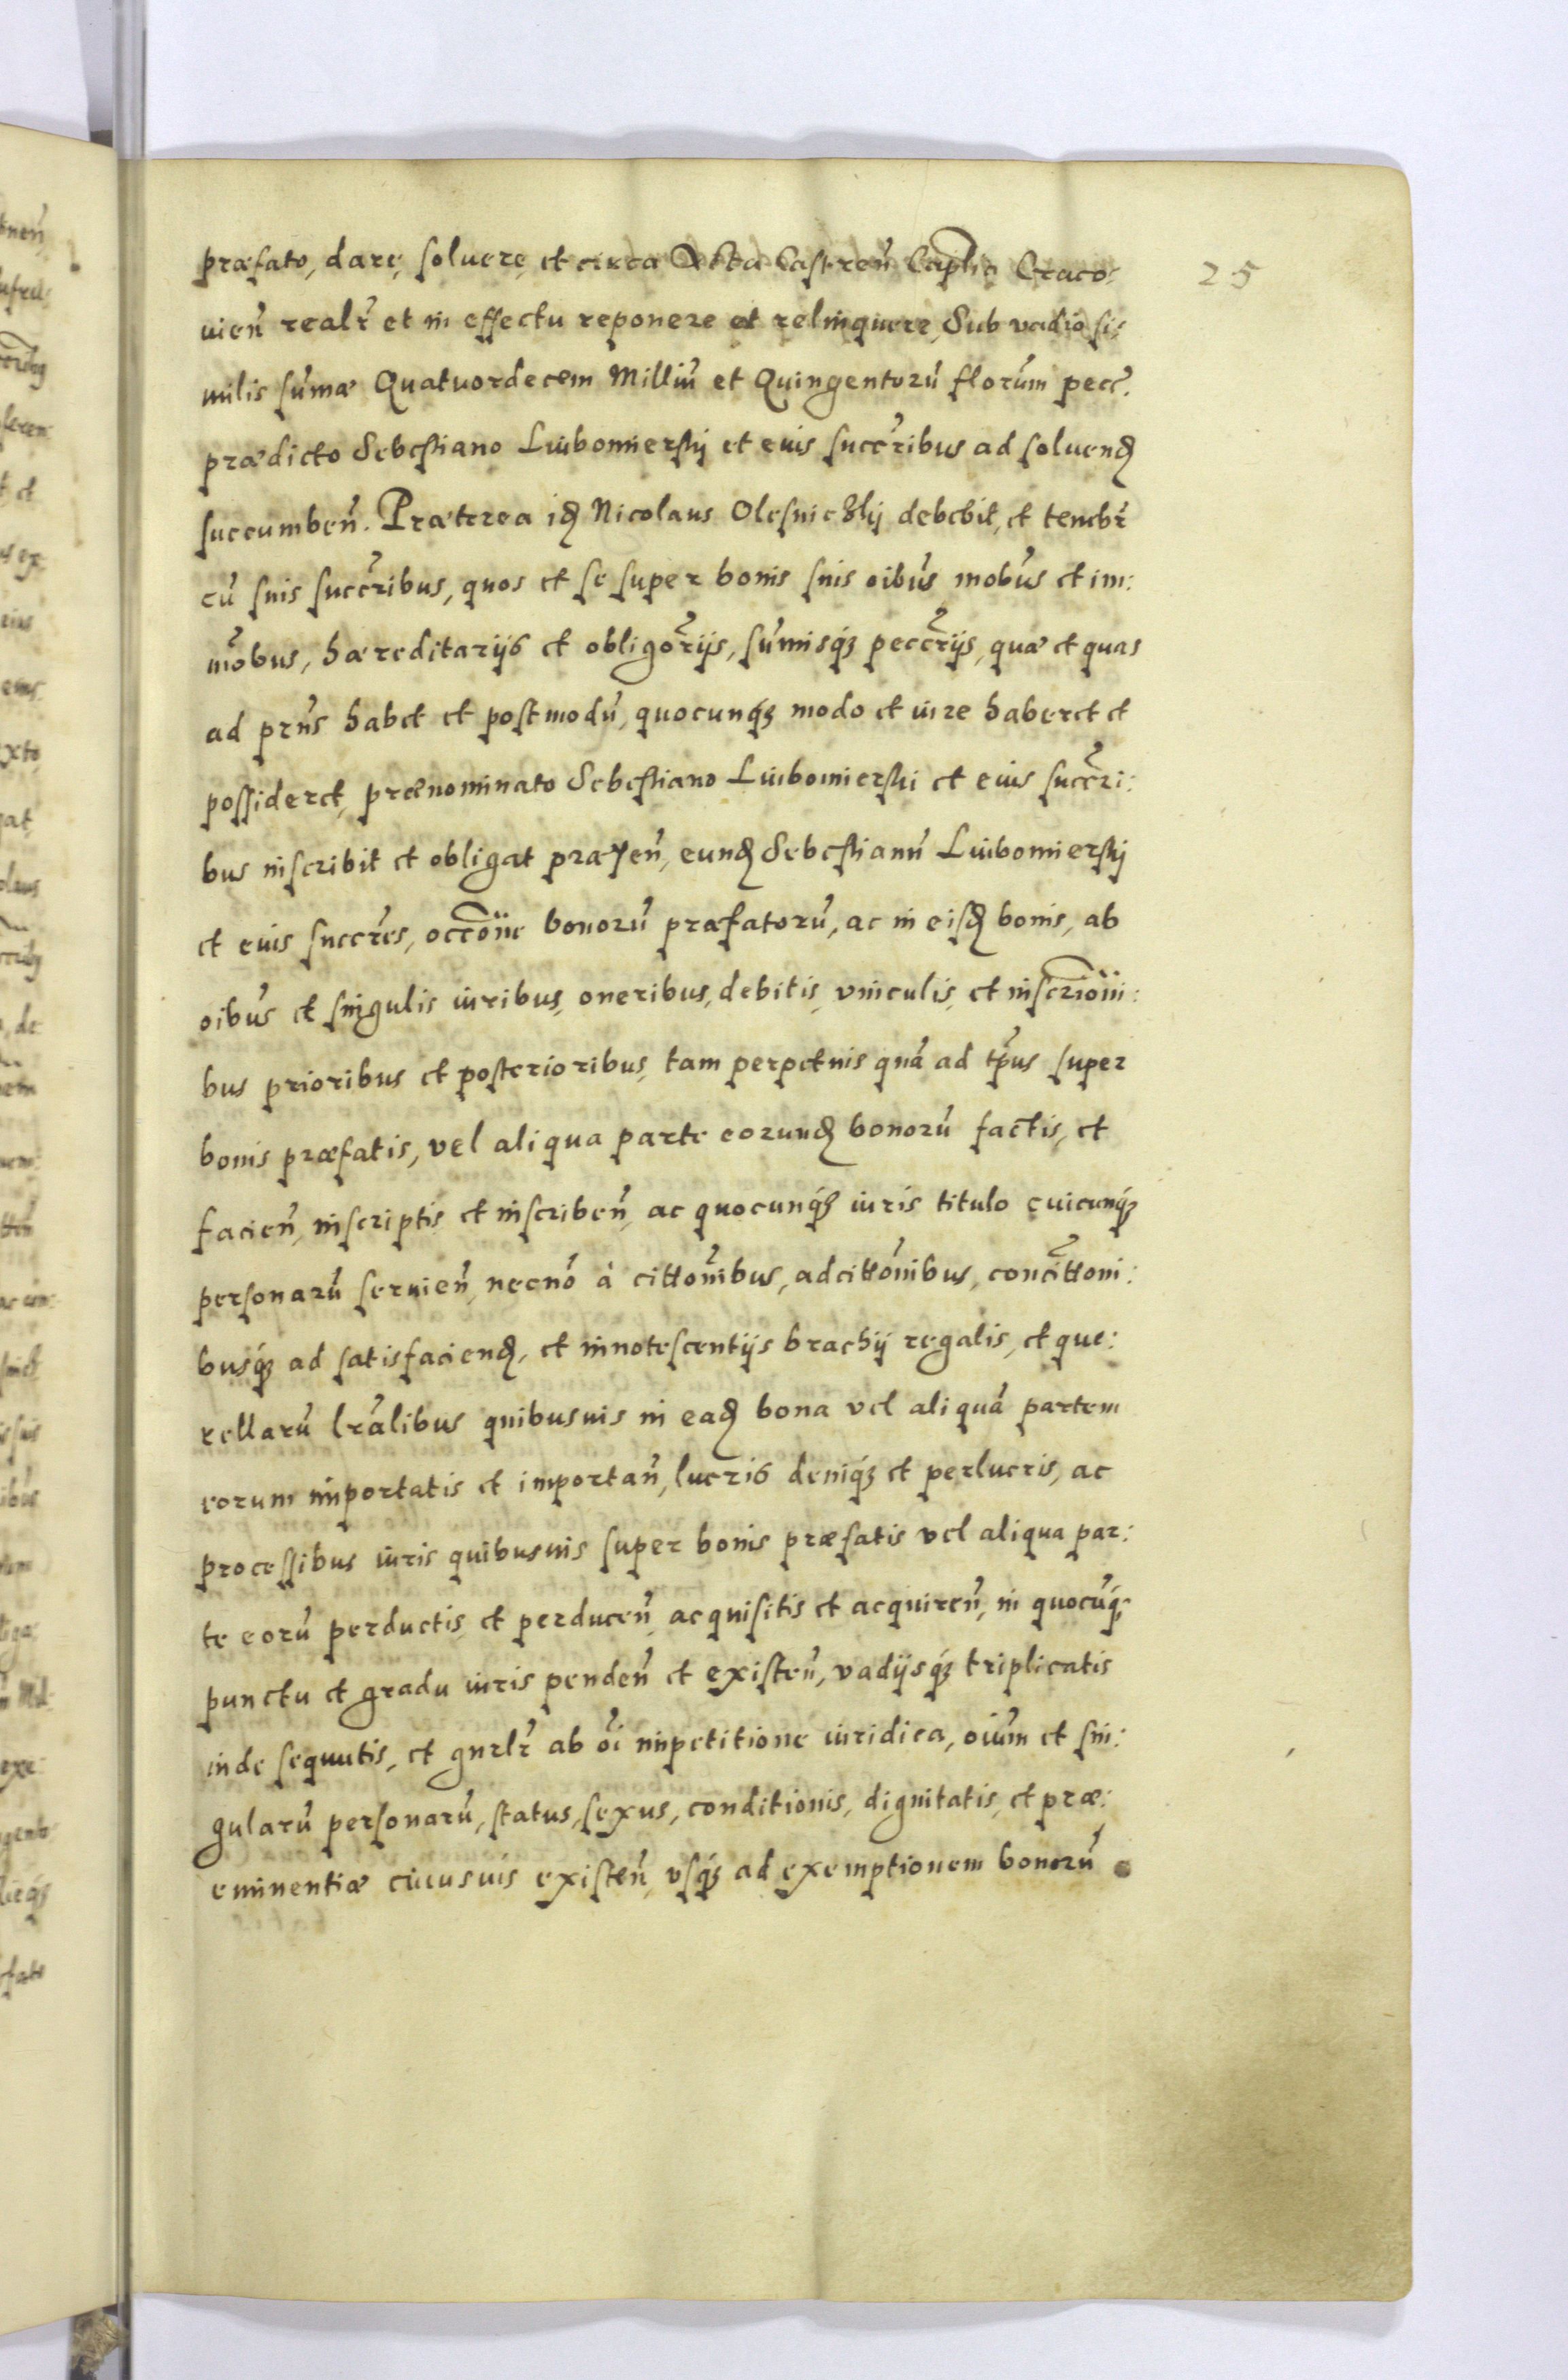 præfato, dare, soluere, et circa Acta Castreñ Capłia Craco:
25
uieñ realr̃ et in effectu reponere et relinquere, Sub vadio si:
milis sum̃æ Quatuordecem Milliũ et Quingentorũ florũm pecc̃.
prædicto Sebestiano Luibomierskij et eius succr̃ibus ad soluenḍ
succumbeñ. Præterea iḍ Nicolaus Olesniczkij debebit, et tenebr̃
cũ suis succr̃ibus, quos et se super bonis suis oibũs mobũs et im:
mõbus, hæreditarijs et obligor̃ijs, sum̃isq́ꝫ peccr̃ijs, quæ et quas
ad prñs habet et postmodũ, quocunq́ꝫ modo et iure haberet et
possideret, prænominato Sebestiano Luibomierski et eius succr̃i:
bus inscribit et obligat præseñ, eunḍ Sebestianũ Luibomierskij
et eius succr̃es, occõne bonorũ præfatorũ, ac in eisḍ bonis, ab
oibũs et singulis iuribus, oneribus, debitis, vinculis, et inscriõni:
bus prioribus et posterioribus, tam perpetuis quã ad tp̃us super
bonis præfatis, vel aliqua parte eorunḍ bonorũ factis, et
facieñ, inscriptis et inscribeñ, ac quocunq́ꝫ iuris titulo cuicunq́ꝫ
personarũ seruieñ, necnõ à cittõnibus, adcittõnibus, concittõni:
busq́ꝫ ad satisfacienḍ, et innotescentijs brachij regalis, et que:
rellarũ lrãlibus quibusuis in eaḍ bona vel aliquã partem
eorum importatis et importañ, lucris deniq́ꝫ et perlucris, ac
processibus iuris quibusuis super bonis præfatis vel aliqua par:
te eorũ perductis et perduceñ, acquisitis et acquireñ, in quocũq́ꝫ
punctu et gradu iuris pendeñ et existeñ, vadijsq́ꝫ triplicatis
inde sequutis, et gnrlr̃ ab oĩ impetitione iuridica, oiũm et sin:
gularũ personarũ, status, sexus, conditionis, dignitatis, et præ:
eminentiæ cuiusuis existeñ, vsq́ꝫ ad exemptionem bonorũ